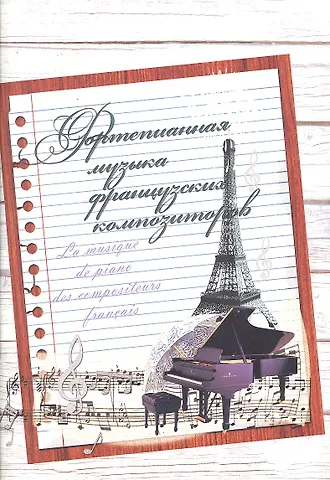 Фортепианная
музыка
французских
композиторов
La musique
de piano
des compositeurs
français